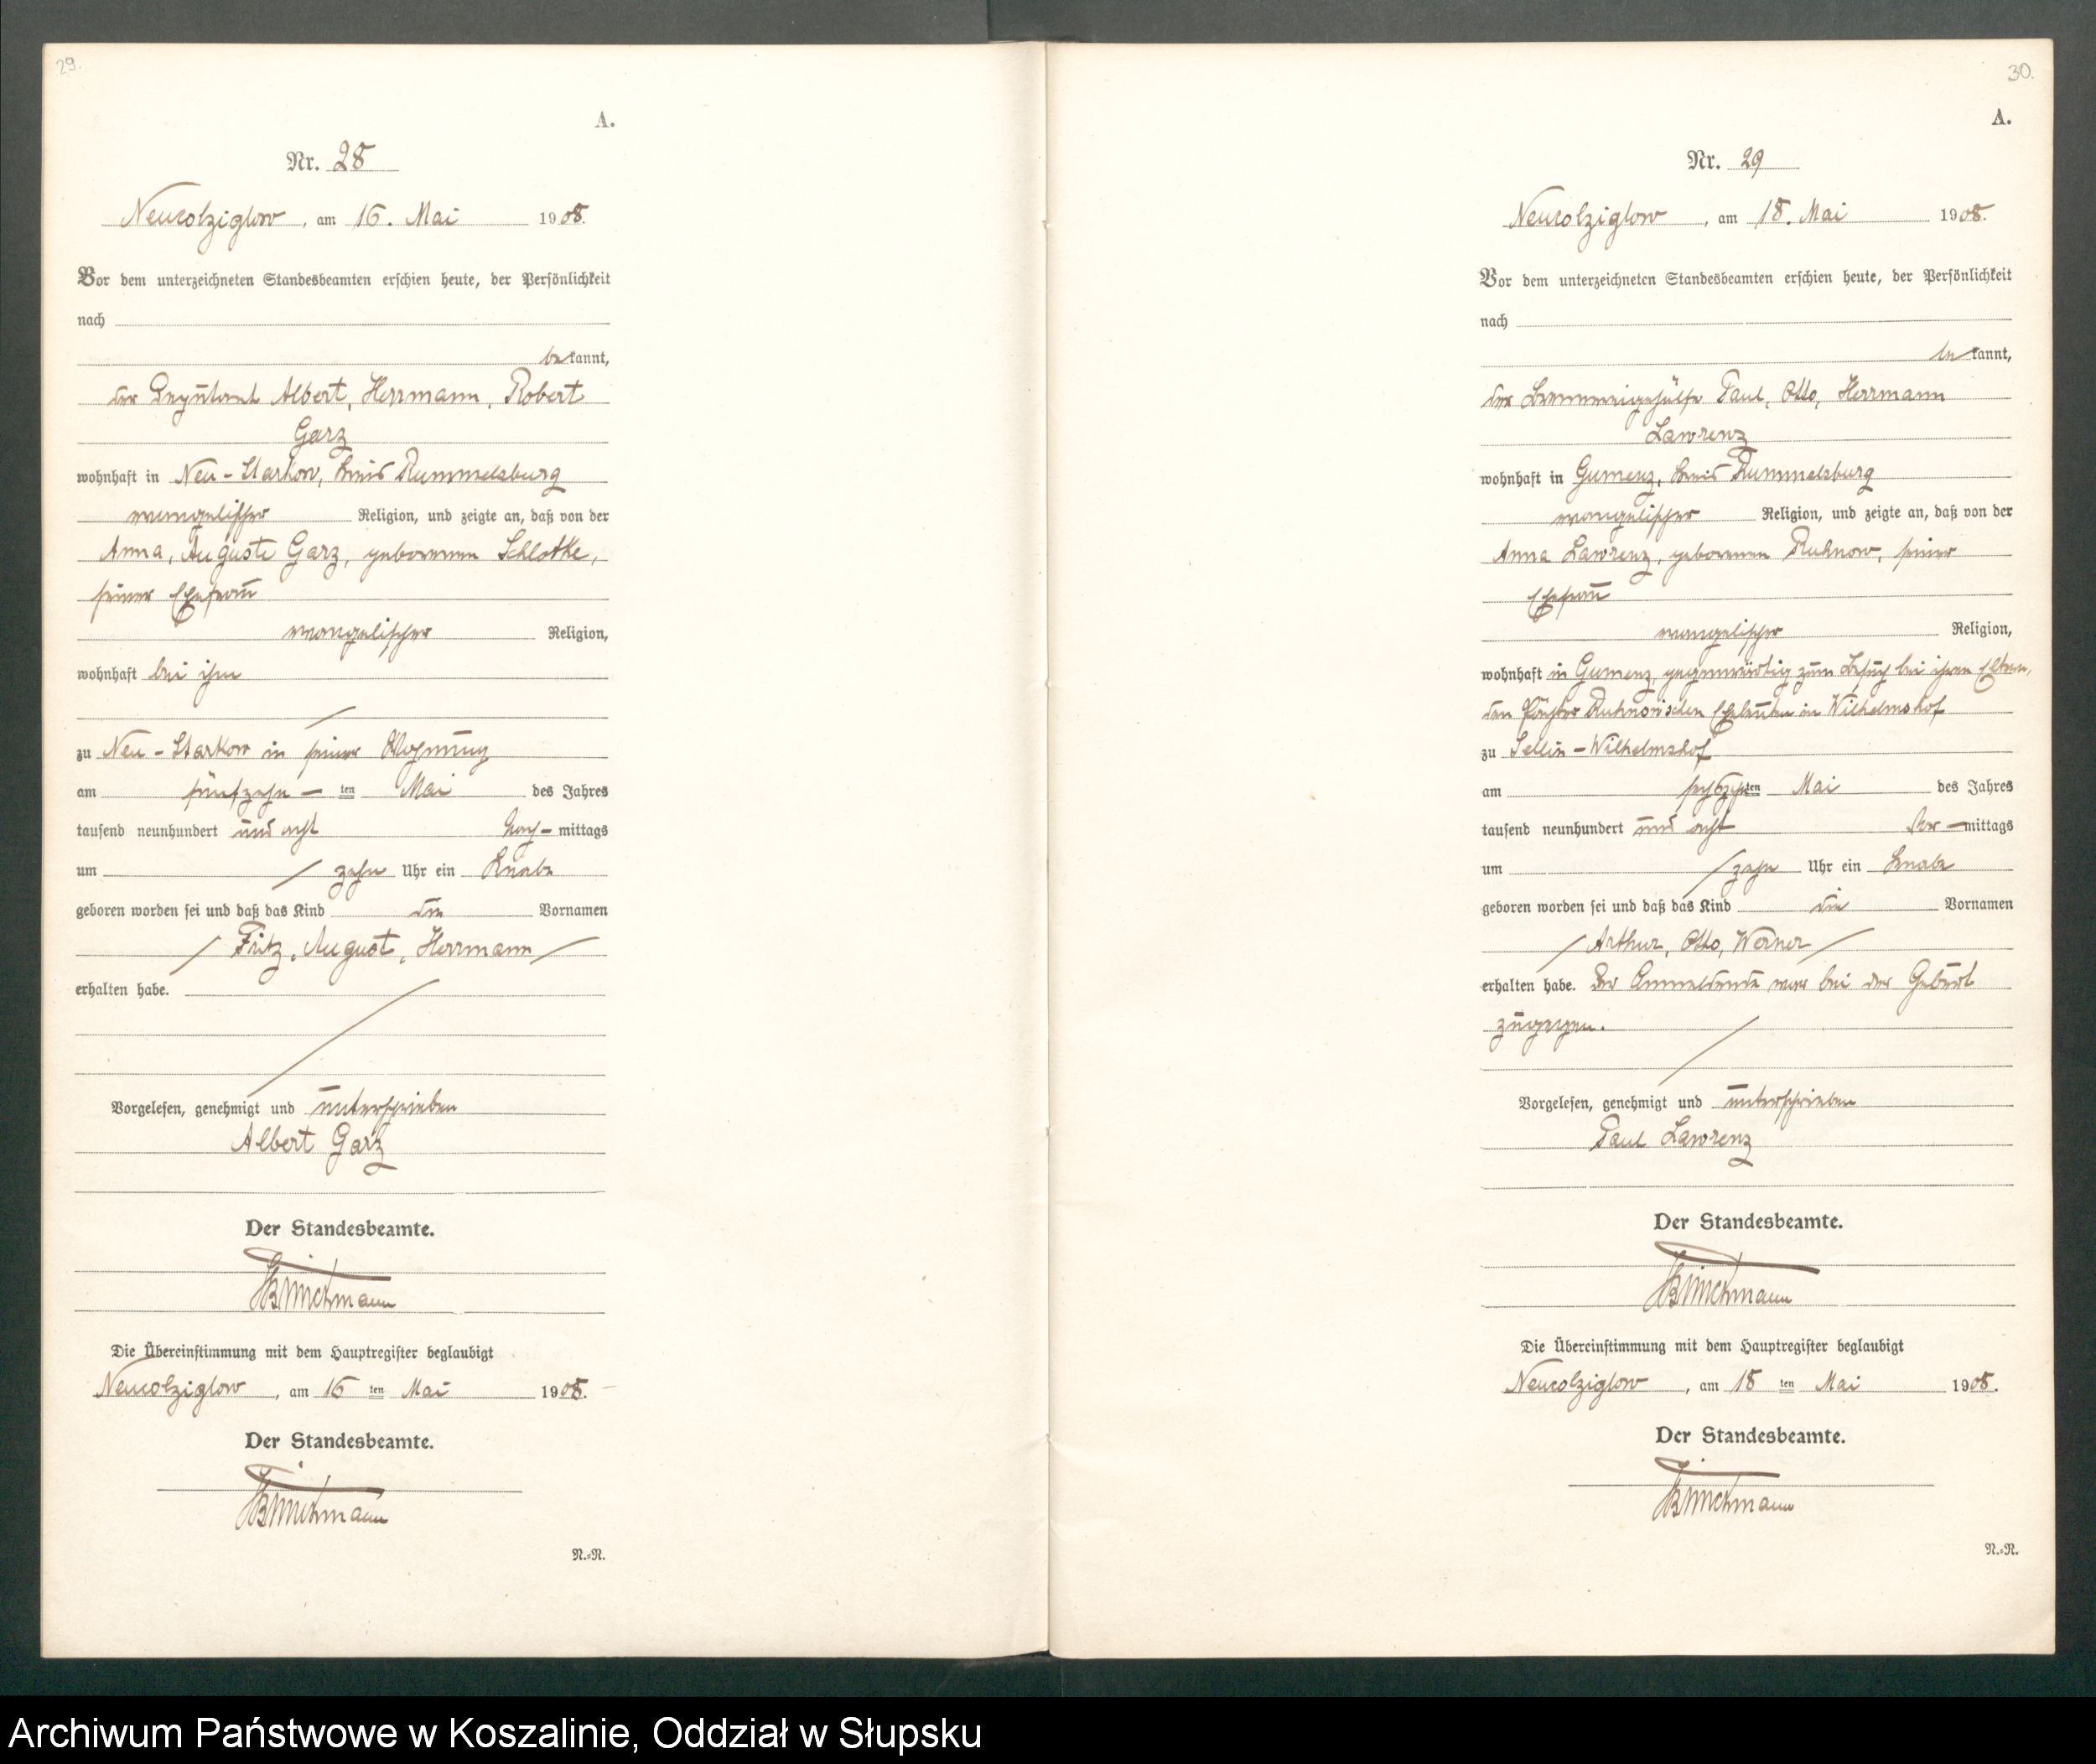 29.
A.
Nr. 28
Neukolziglow, am 16. Mai 1908.
Vor dem unterzeichneten Standesbeamten erschien heute, der Persönlichkeit
nach
bekannt,
der Deputant Albert, Herrmann, Robert
Garz
wohnhaft in Neu-Starkow, Kreis Rummelsburg
evangelischer Religion, und zeigte an, daß von der
Anna, Auguste Garz, geborenen Schlottke,
seiner Ehefrau
evangelischer Religion,
wohnhaft bei ihm
zu Neu-Starkow in seiner Wohnung
am fünfzehn-ten Mai des Jahres
tausend neunhundert und acht Nach-mittags
um zehn Uhr ein Knabe
geboren worden sei und daß das Kind die Vornamen
Fritz, August, Herrmann
erhalten habe.
Vorgelesen, genehmigt und unterschrieben
Albert Garz
Der Standesbeamte.
Die Übereinstimmung mit dem Hauptregister beglaubigt
Neukolziglow, am 16ten Mai 1908.
Der Standesbeamte.
N.=R.
30.
A.
Nr. 29
Neukolziglow, am 18. Mai 1908.
Vor dem unterzeichneten Standesbeamten erschien heute, der Persönlichkeit
nach
bekannt,
der Brennereigehülfe Paul, Otto, Herrmann
Lawrenz
wohnhaft in Gumenz, Kreis Rummelsburg
evangelischer Religion, und zeigte an, daß von der
Anna Lawrenz, geborenen Ruhnow, seiner
Ehefrau
evangelischer Religion,
wohnhaft in Gumenz, gegenwärtig zum Besuch bei ihren Eltern,
den Ruhnowschen Eheleuten in Wilhelmshof
zu Sellin-Wilhelmshof
am sechszehnten Mai des Jahres
tausend neunhundert und acht Vor-mittags
um zehn Uhr ein Knabe
geboren worden sei und daß das Kind die Vornamen
Arthur, Otto, Werner
erhalten habe. Der Anmeldende war bei der Geburt
zugegen.
Vorgelesen, genehmigt und unterschrieben
Paul Lawrenz
Der Standesbeamte.
Die Übereinstimmung mit dem Hauptregister beglaubigt
Neukolziglow, am 18ten Mai 1908.
Der Standesbeamte.
N.=R.
Archiwum Państwowe w Koszalinie, Oddział w Słupsku